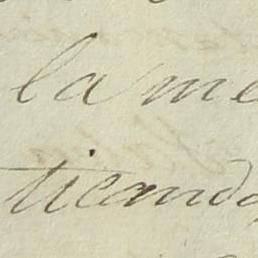 la me
ticando